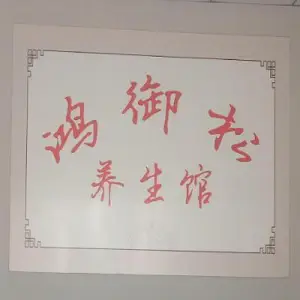 鸿御
养生馆